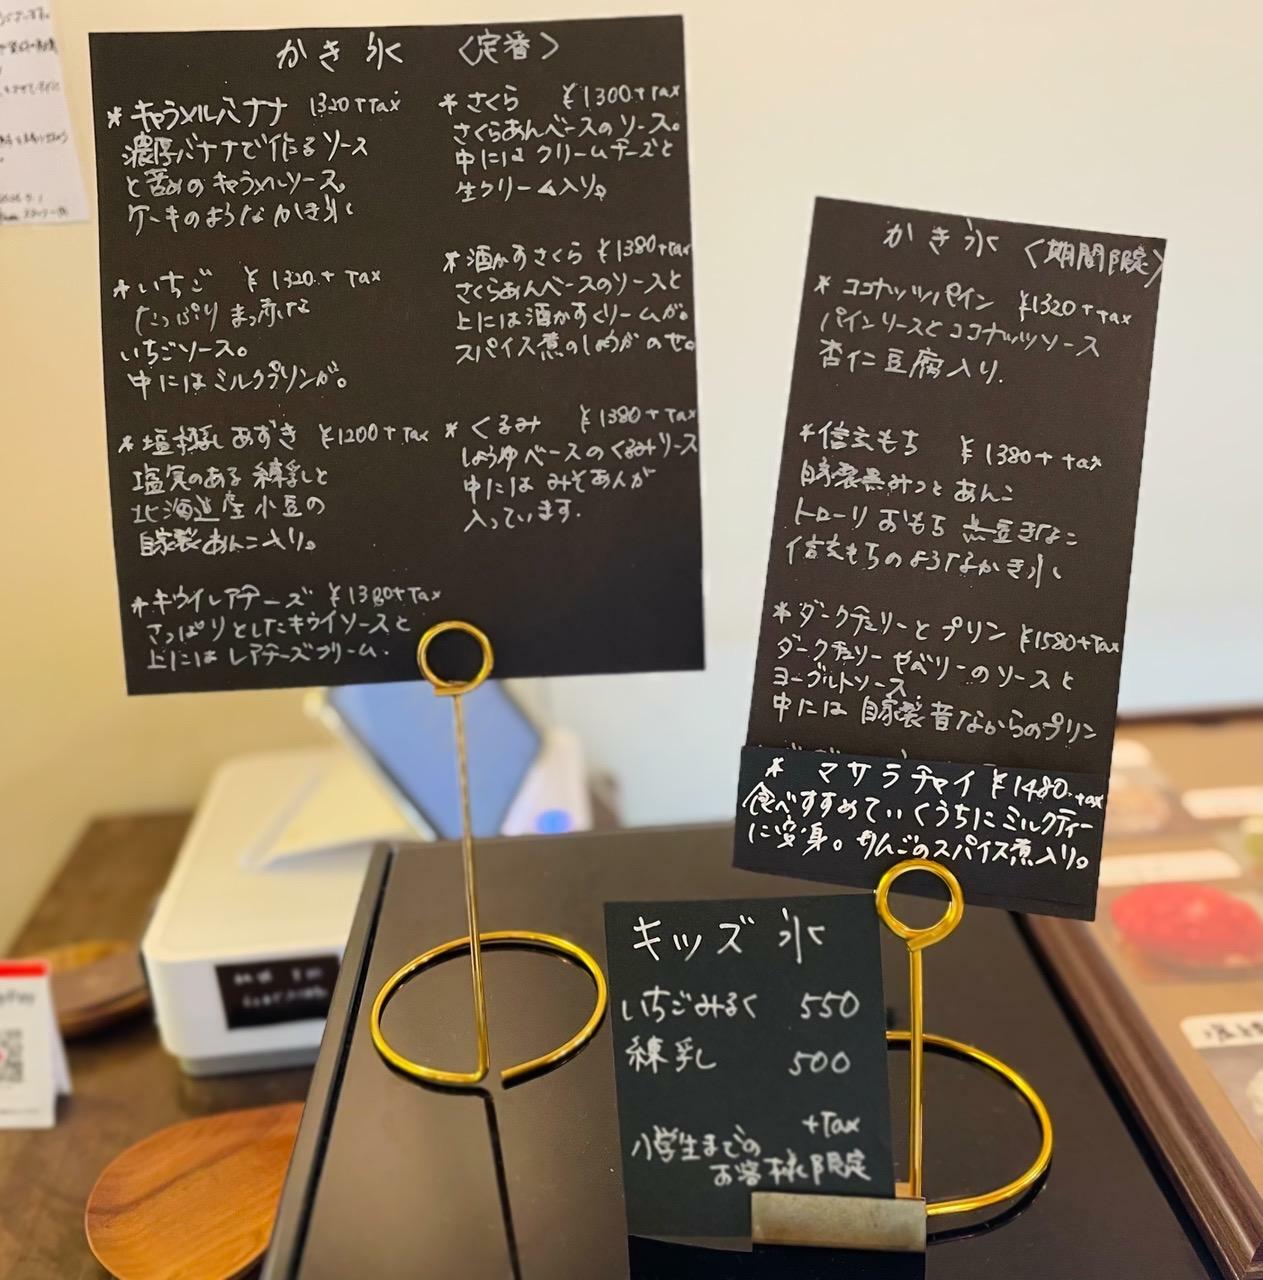 かき氷 〈定番〉
*キャラメルバナナ 1320+Tax
濃厚バナナで作るソース
と苦めのキャラメルソース。
ケーキのようなかき氷
*いちご ¥1320.+Tax
たっぷりまっ赤な
いちごソース。
中にはミルクプリンが。
*塩練乳あずき ¥1200+Tax
塩気のある練乳と
北海道産小豆の
自家製あんこ入り。
*キウイレアチーズ ¥1380+Tax
さっぱりとしたキウイソースと
上にはレアチーズクリーム.
*さくら ¥1300+Tax
さくらあんベースのソース。
中にはクリームチーズと
生クリーム入り。
*酒かすさくら ¥1380+Tax
さくらあんベースのソースと
上には酒かすクリームが。
スパイス煮のしょうがのせ。
*くるみ ¥1380+Tax
しょうゆベースのくるみソース
中にはみそあんが
入っています.
かき氷〈期間限定〉
*ココナッツパイン ¥1320+Tax
パインソースとココナッツソース
杏仁豆腐入り.
*信玄もち ¥1380+Tax
自家製黒みつとあんこ
トローリおもち 黒豆きなこ
信玄もちのようなかき氷
*ダークチェリーとプリン ¥1580+Tax
ダークチェリー のソースと
ヨーグルトソース
中には自家製昔ながらのプリン
* マサラチャイ ¥1480.+tax
食べすすめていくうちにミルクティー
に変身。りんごのスパイス煮入り。
キッズ氷
いちごみるく 550
練乳 500
+Tax
小学生までの
お客様限定